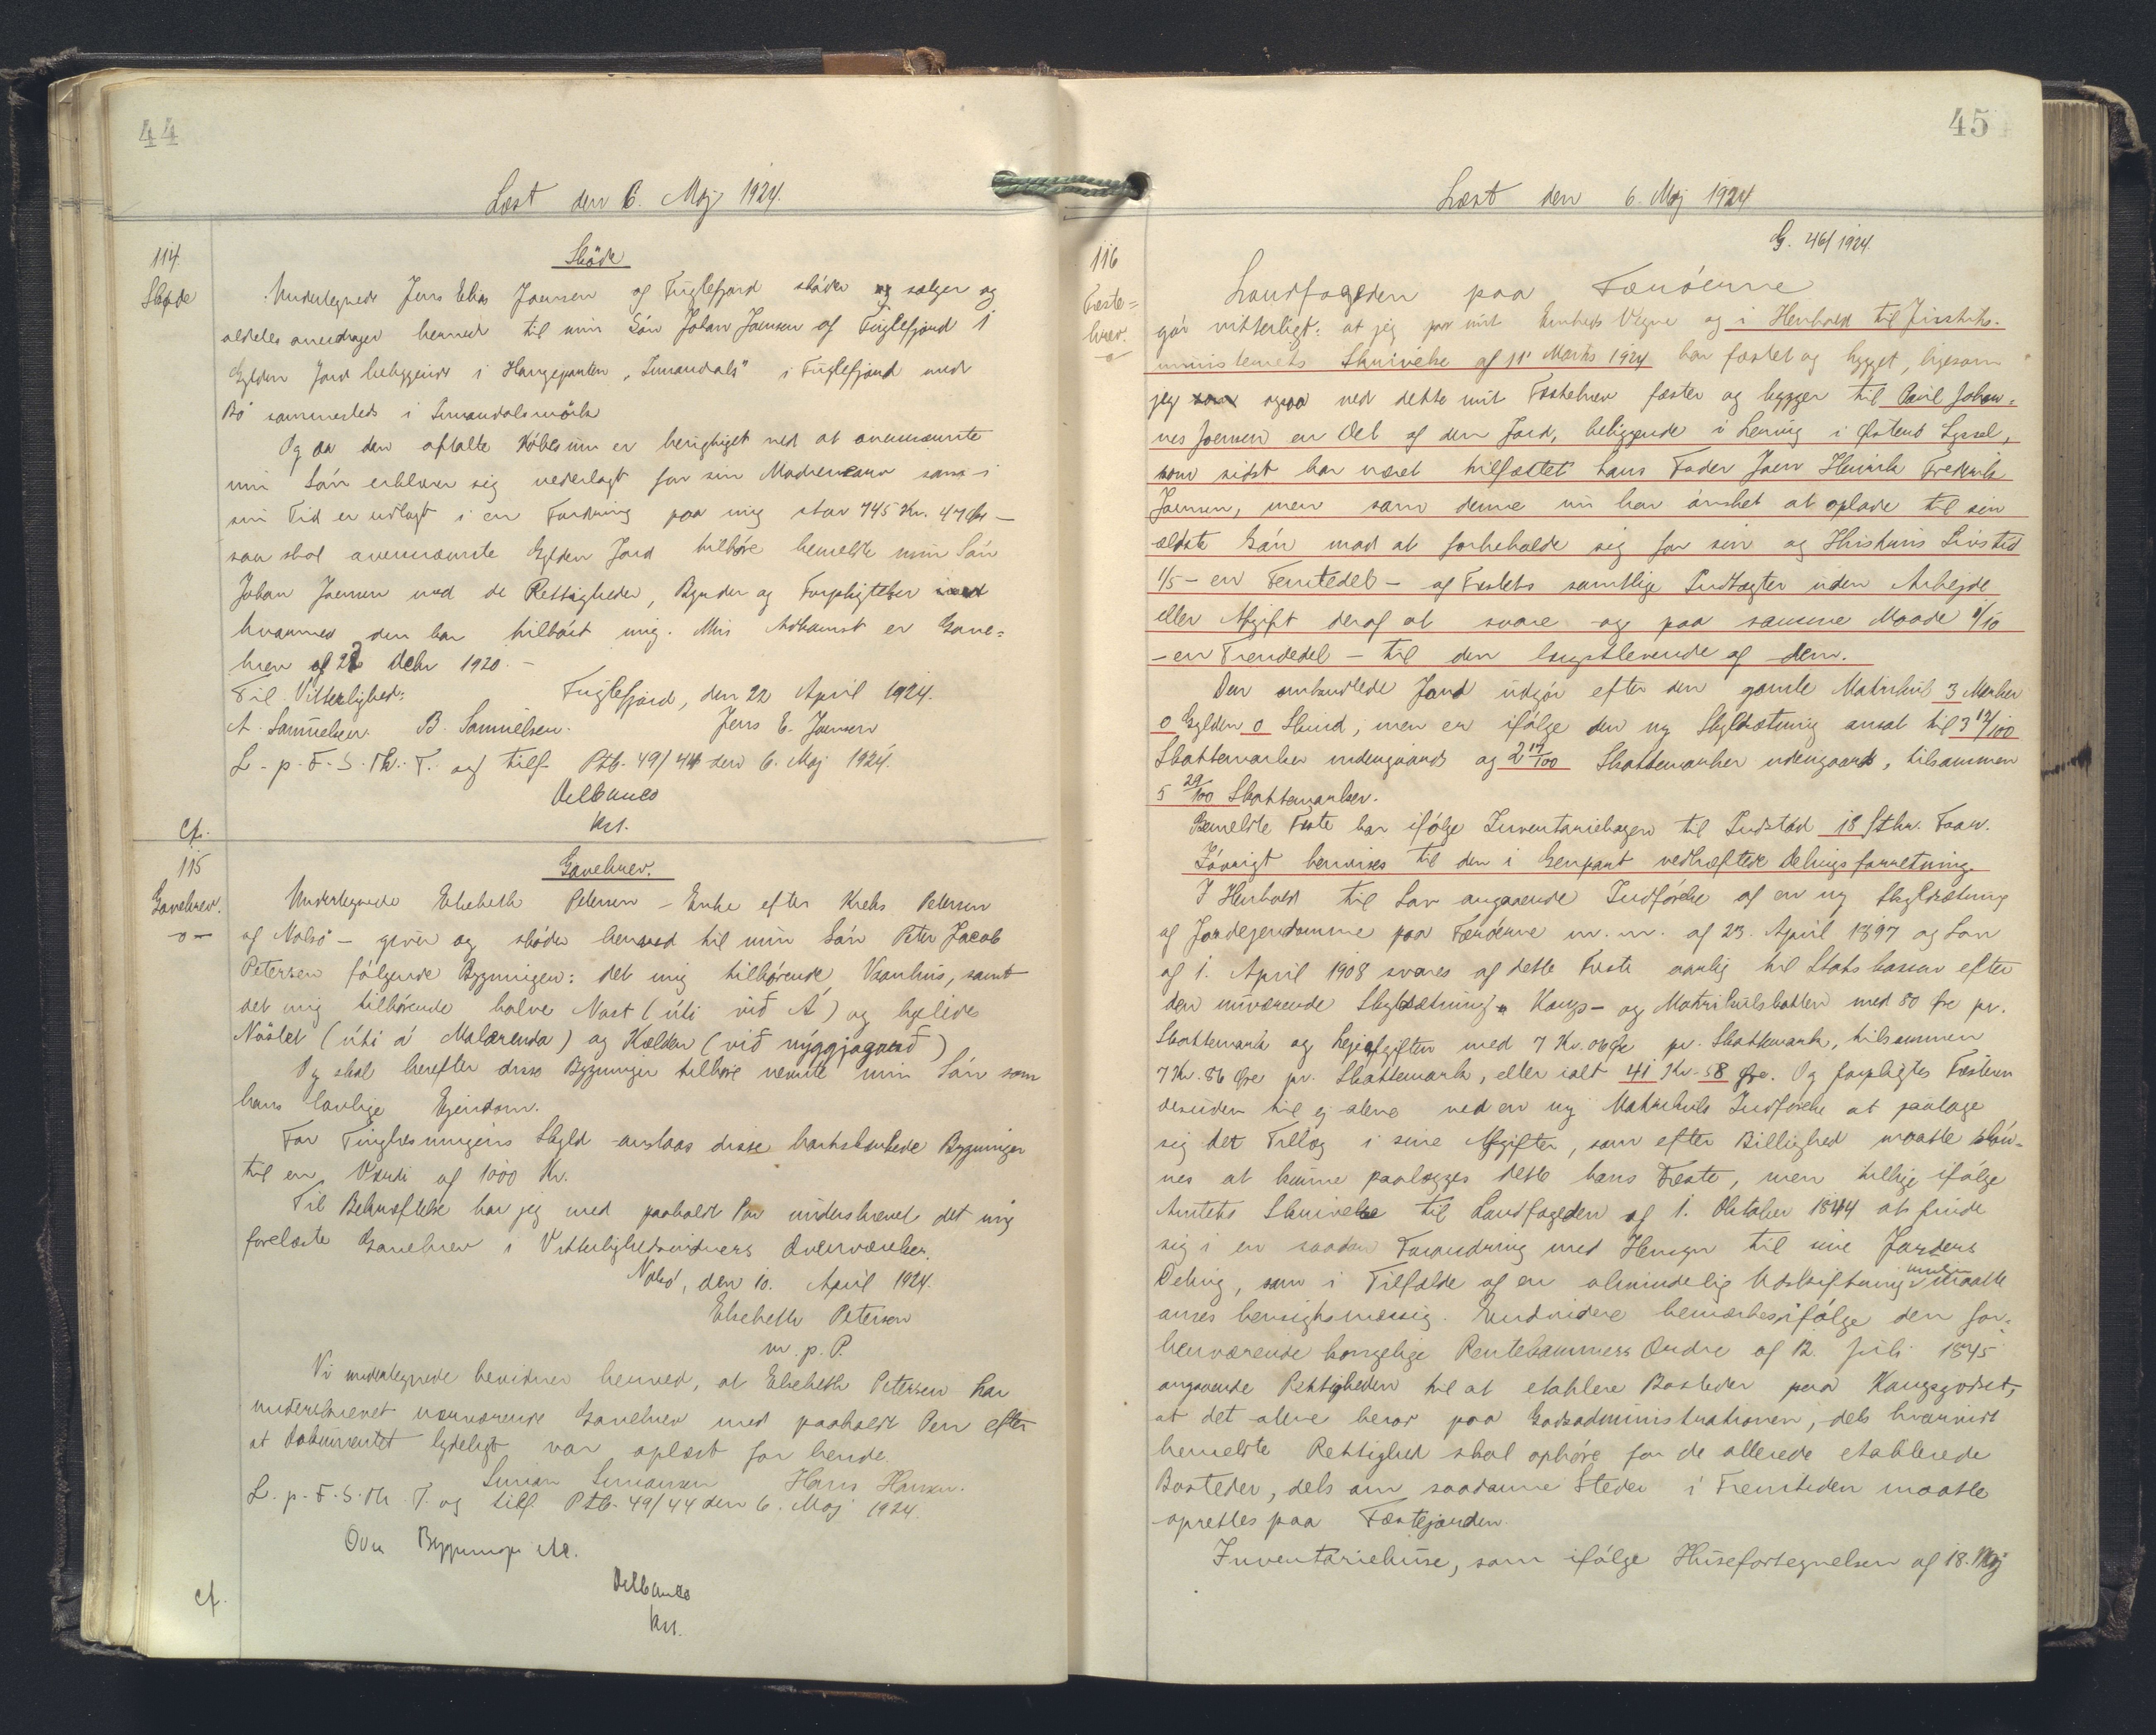 44
Læst den 6. Maj 1924.
114.
Skøde
Skøde
Undertegnede Jens Elias Joensen af Fuglefjord skøder og sælger og
aldeles overdrager herved til min Søn Johan Joensen af Fuglefjord 1
Gylden Jord beliggende i Haugeparten "Simundals" i Fuglefjord med
Bø sammesteds i Simundalsmørk
Og da den aftalte Købesum er berigtiget ved at ovennævnte
min Søn erklærer sig vederlagt for sin Mødrenearv som i
sin Tid er udlagt i en Fordring paa mig stor 745 Kr. 47 Øre —
saa skal ovennævnte Gylden Jord tilhøre bemeldte min Søn
Johan Joensen med de Rettigheder, Byrder og Forpligtelser
hvormed den har tilhørt mig. Min Adkomst er Gave=
brev af 22 Debr 1920. —
Til Vitterlighed: Fuglefjord, den 22 April 1924.
A. Samuelsen. B. Samuelsen. Jens E. Joensen
L. p. F. S. Th. T. og tilf. Ptb. 49/44 den 6. Maj 1924.
Delbanco
kst.
Cf.
115
Gavebrev.
—o—
Gavebrev.
Undertegnede Elsebeth Petersen — Enke efter Krebs Petersen
af Nolsø — giver og skøder herved til min Søn Peter Jacob
Petersen følgende Bygninger: det mig tilhørende Vaanhus, samt
det mig tilhørende halve Nast (úti við Á) og hjelides
Nøstet (úti á Malarenda) og Kælder (við nýggjagarð)
Og skal herefter disse Bygninger tilhøre nævnte min Søn som
hans lovlige Ejendom.
For Tinglæsningens Skyld anslaas disse bortskænkede Bygninger
til en Værdi af 1000 Kr.
Til Bekræftelse har jeg med paaholdt Pen underskrevet det mig
forelæste Gavebrev i Vitterlighedsvidners Overværelse.
Nolsø, den 10. April 1924.
Elsebeth Petersen
m. p. P.
Vi undertegnede bevidner herved, at Elsebeth Petersen har
underskrevet nærværende Gavebrev med paaholdt Pen efter
at Dokumentet tydeligt var oplæst for hende.
Simun Simonsen Hans Hansen.
L. p. F. S. Th. T. og tilf. Ptb. 49/44 den 6. Maj 1924.
Ovn Bygninger
Delbanco
kst.
cf.
45
Læst den 6. Maj 1924
G. 46/1924.
116
Fæste=
brev.
—o—
Landfogeden paa Færöerne
gör vitterligt: at jeg paa mit Embeds Vegne og i Henhold til Justits-
ministeriets Skrivelse af 11' Marts 1924 har fæstet og bygget, ligesom
jeg ogsaa ved dette mit Fæstebrev fæster og bygger til Poul Johan=
nes Joensen en Del af den Jord, beliggende i Lervig i Østerø Syssel,
som sidst har været tilfæstet hans Fader Joen Henrik Frederik
Joensen, men som denne nu har ønsket at oplade til sin
ældste Søn mod at forbeholde sig for sin og Hustrus Livstid
1/5 — en Femtedel — af Fæstets samtlige Indtægter uden Arbejde
eller Afgift deraf at svare og paa samme Maade 1/10
— en Tiendedel — til den længstlevende af dem.
Den ombudlede Jord udgør efter den gamle Matrikul 3 Marker
0 Gylden 0 Skind, men er ifølge den ny Skyldsætning ansat til 3 12/100
Skattemarker indengaards og 2 17/100 Skattemarker udengaards, tilsammen
5 29/100 Skattemarker.
Bemeldte Fæste har ifølge Inventariebogen til Indstød 18 Stkr. Faar.
Iøvrigt henvises til den i Genpart vedhæftede Delingsforretning.
I Henhold til Lov angaaende Indførelse af en ny Skyldsætning
af Jordejendomme paa Færøerne m. m. af 23. April 1897 og Lov
af 1. April 1908 svares af dette Fæste aarlig til Statskassen efter
den nuværende Skyldsætning Konge- og Matrikulskatten med 80 Øre pr.
Skattemark og Lejeafgiften med 7 Kr. 06 Øre pr. Skattemark, tilsammen
7 Kr. 86 Øre pr. Skattemark, eller ialt 41 Kr. 58 Øre. Og forpligtes Fæsteren
desuden til ej alene ved en ny Matrikuls Indførelse at paatage
sig det Tillæg i sine Afgifter, som efter Billighed maatte skøn=
nes at kunne paalægges dette hans Fæste, men tillige ifølge
Amtets Skrivelse til Landfogden af 1. Oktober 1844 at finde
sig i en saadan Forandring med Hensyn til sine Jorders
Deling, som i Tilfælde af en almindelig Udskiftning maatte
anses hensigtsmæssig. Endvidere bemærkes ifølge den for=
henværende kongelige Rentekammers Ordre af 12. Juli 1845
angaaende Rettigheden til at etablere Bosteder paa Kongsgodset,
at det alene beror paa Godsadministrationen, dels hvorvidt
bemeldte Rettighed skal ophøre for de allerede etablerede
Bosteder, dels om saadanne Steder i Fremtiden maatte
oprettes paa Fæstejorden.
Inventariehuse, som ifølge Husefortegnelsen af 18. Maj